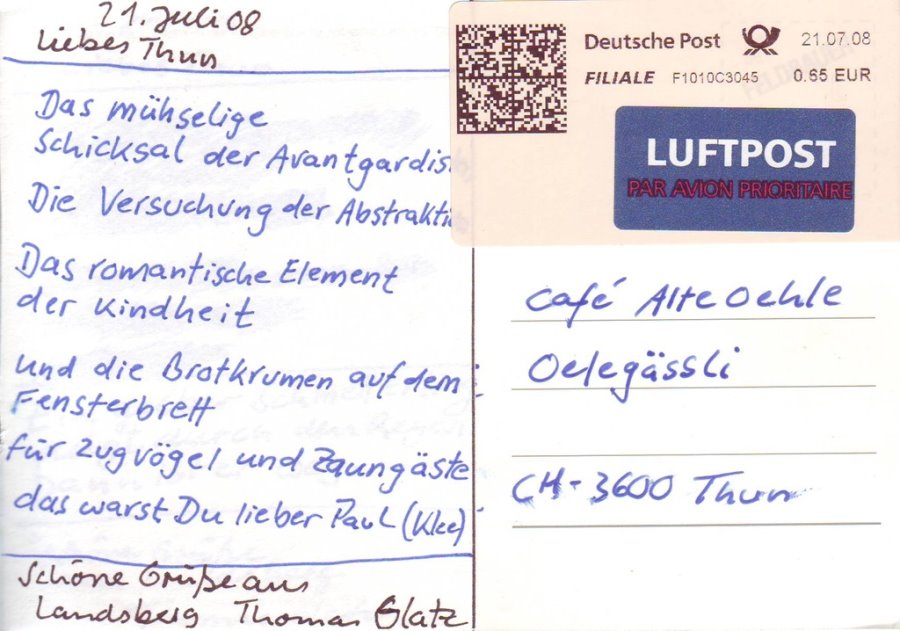 21. Juli 08
Liebes Thun
Das mühselige
Schicksal der Avantgardis
Die Versuchung der Abstrakti
Das romantische Element
der Kindheit
und die Brotkrumen auf dem
Fensterbrett
für Zugvögel und Zaungäste
das warst Du lieber Paul (Klee)
Schöne Grüße aus
Landsberg Thomas Glatz
Deutsche Post 21.07.08
FILIALE F1010C3045 0.65 EUR
LUFTPOST
PAR AVION PRIORITAIRE
Café Alte Oehle
Oelegässli
CH-3600 Thun